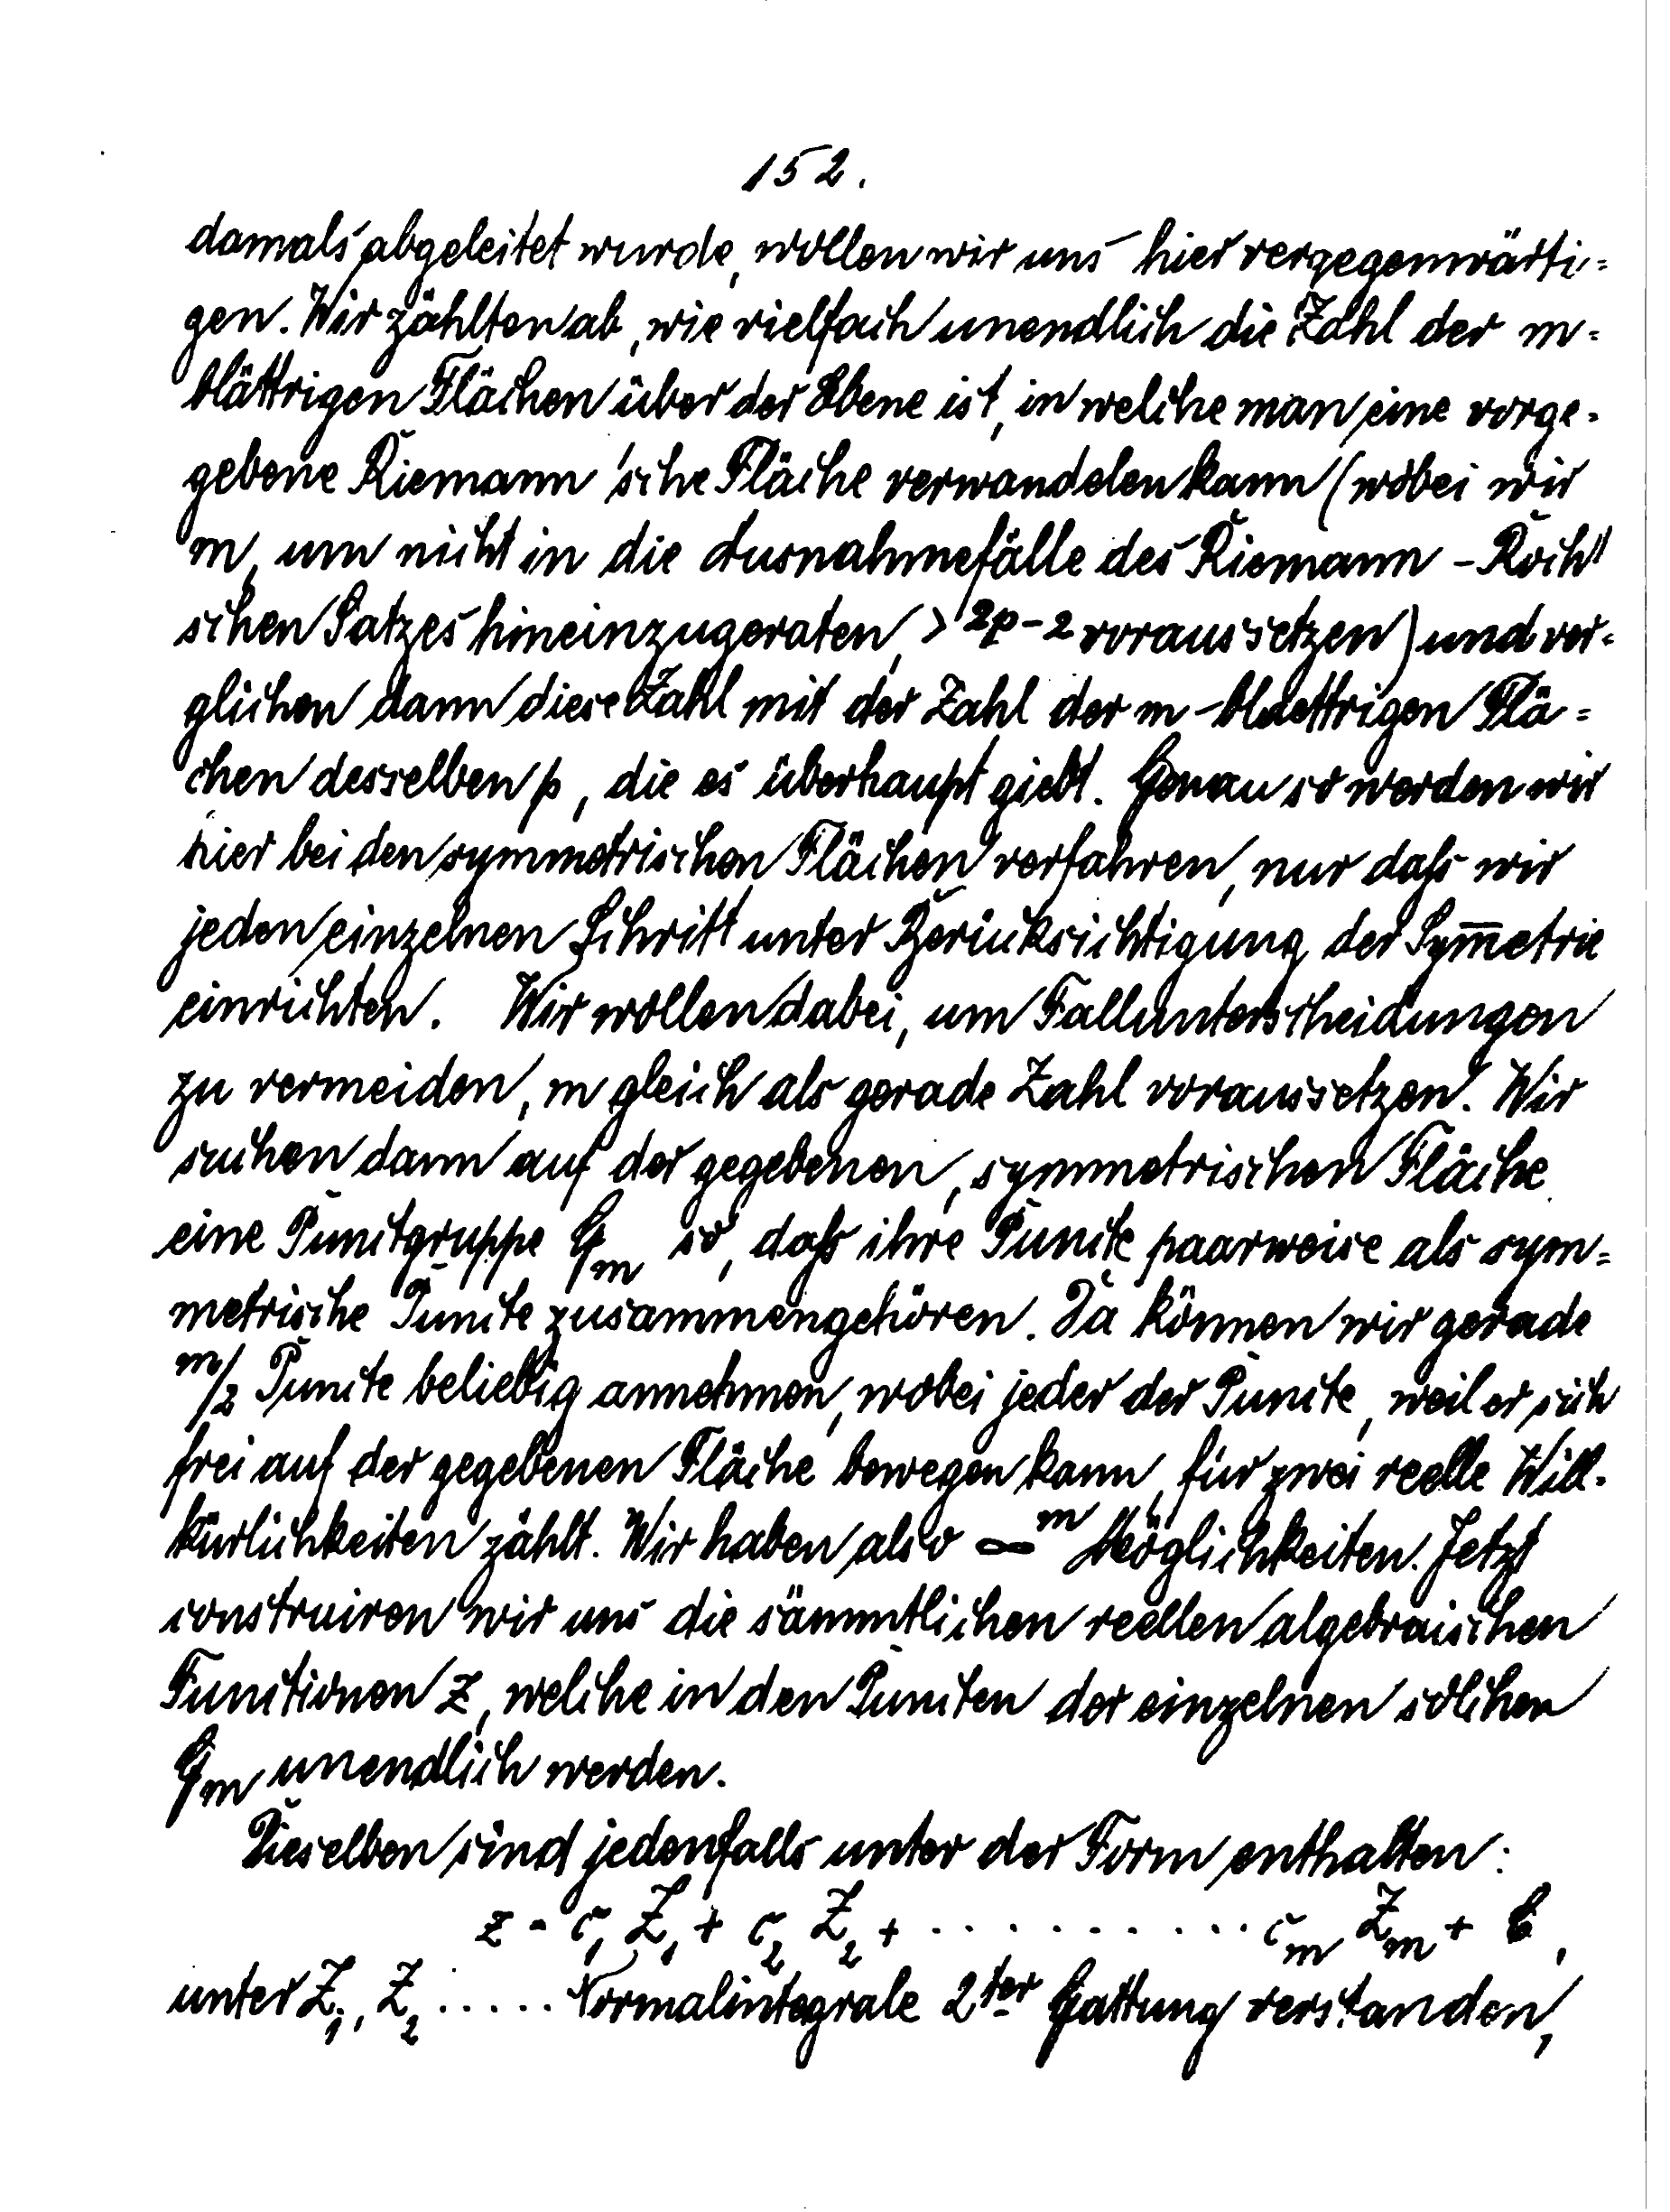 152.
damals abgeleitet wurde, wollen wir uns hier vergegenwärti-
gen. Wir zählten ab, wie vielfach unendlich die Zahl der m-
blättrigen Flächen über der Ebene ist, in welche man eine vorge-
gebene Riemann'sche Fläche verwandelen kann (wobei wir
m, um nicht in die Ausnahmefälle des Riemann-Roch'
schen Satzes hineinzugeraten, > 2p-2 voraussetzen) und ver-
glichen dann diese Zahl mit der Zahl der m-blaettrigen Flä-
chen desselben p, die es überhaupt giebt. Genau so werden wir
hier bei den symmetrischen Flächen verfahren, nur daß wir
jeden einzelnen Schritt unter Berücksichtigung der Sym̅etrie
einrichten. Wir wollen dabei, um Fallunterscheidungen
zu vermeiden, m gleich als gerade Zahl voraussetzen. Wir
suchen dann auf der gegebenen, symmetrischen Fläche
eine Punctgruppe G_m so, daß ihre Puncte paarweise als sym-
metrische Puncte zusammengehören. Da können wir gerade
m/2 Puncte beliebig annehmen, wobei jeder der Puncte, weil er sich
frei auf der gegebenen Fläche bewegen kann, für zwei reelle Will-
kürlichkeiten zählt. Wir haben also ∞^m Möglichkeiten. Jetzt
construiren wir uns die sämmtlichen reellen algebraischen
Functionen z, welche in den Puncten der einzelnen solchen
G_m unendlich werden.
Dieselben sind jedenfalls unter der Form enthalten:
z = c_1 Z_1 + c_2 Z_2 + .......... c_m Z_m + C,
unter Z_1, Z_2 ..... Normalintegrale 2ter Gattung verstanden,